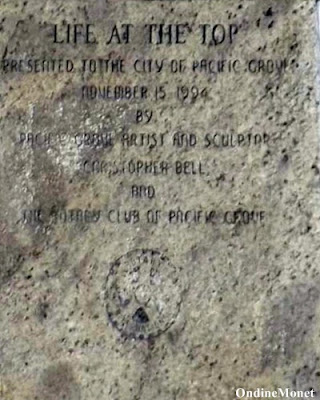 "LIFE AT THE TOP"
PRESENTED TO THE CITY OF PACIFIC GROVE
NOVEMBER 15 1994
BY
PACIFIC GROVE ARTIST AND SCULPTOR
CHRISTOPHER BELL
AND
THE ROTARY CLUB OF PACIFIC GROVE
OndineMonet